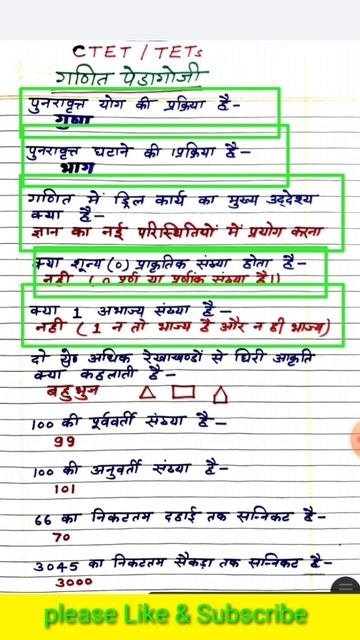 CTET / TETs
गणित पेडागोजी
पुनरावृत्त योग की प्रक्रिया है-
गुणा
पुनरावृत्त घटाने की प्रक्रिया है-
भाग
गणित में ड्रिल कार्य का मुख्य उद्देश्य
क्या है-
ज्ञान का नई परिस्थितियों में प्रयोग करना
क्या शून्य (0) प्राकृतिक संख्या होता है-
नहीं ( 0 पूर्ण या पूर्णांक संख्या है।)
क्या 1 अभाज्य संख्या है-
नहीं ( 1 न तो भाज्य है और न ही भाज्य)
दो से अधिक रेखाखण्डों से घिरी आकृति
क्या कहलाती है-
बहुभुज
100 की पूर्ववर्ती संख्या है-
99
100 की अनुवर्ती संख्या है-
101
66 का निकटतम दहाई तक सन्निकट है-
70
3045 का निकटतम सैकड़ा तक सन्निकट है-
3000
please Like & Subscribe